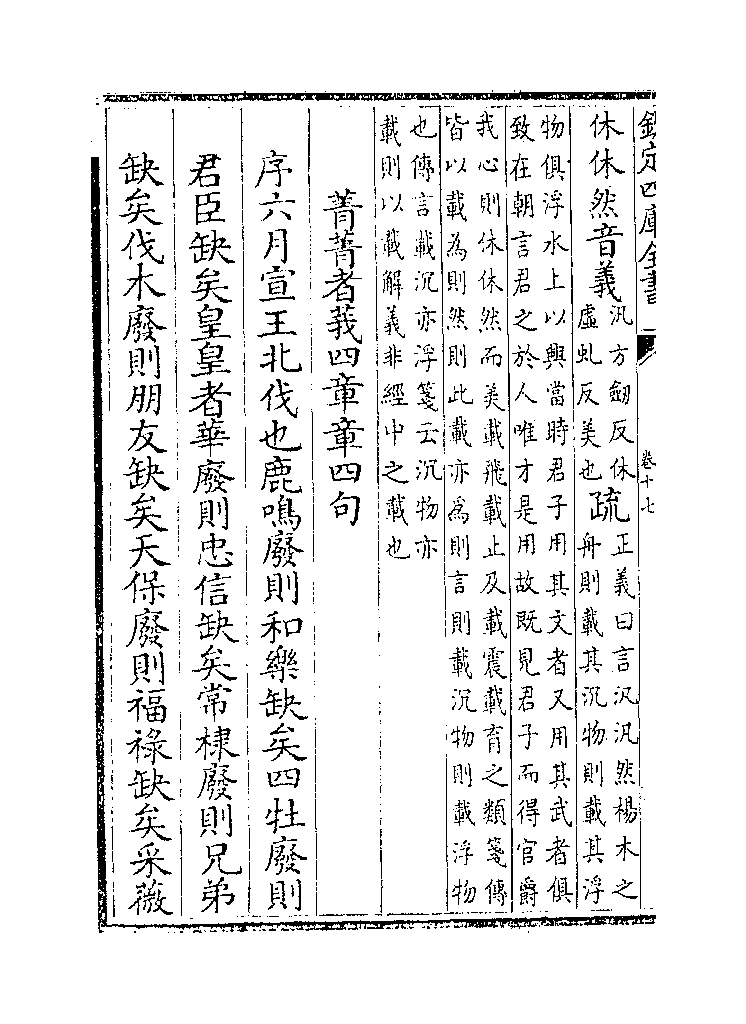 欽定四庫全書
卷十七
休休然音義汎方劒反休
虛虬反美也疏正義曰言汎汎然楊木之
舟則載其沉物則載其浮
物俱浮水上以興當時君子用其文者又用其武者俱
致在朝言君之於人唯才是用故既見君子而得官爵
我心則休休然而美載飛載止及載震載育之類箋傳
皆以載為則然則此載亦為則言則載沉物則載浮物
也傳言載沉亦浮箋云沉物亦
載則以載解義非經中之載也
菁菁者莪四章章四句
序六月宣王北伐也鹿鳴廢則和樂缺矣四牡廢則
君臣缺矣皇皇者華廢則忠信缺矣常棣廢則兄弟
缺矣伐木廢則朋友缺矣天保廢則福祿缺矣采薇